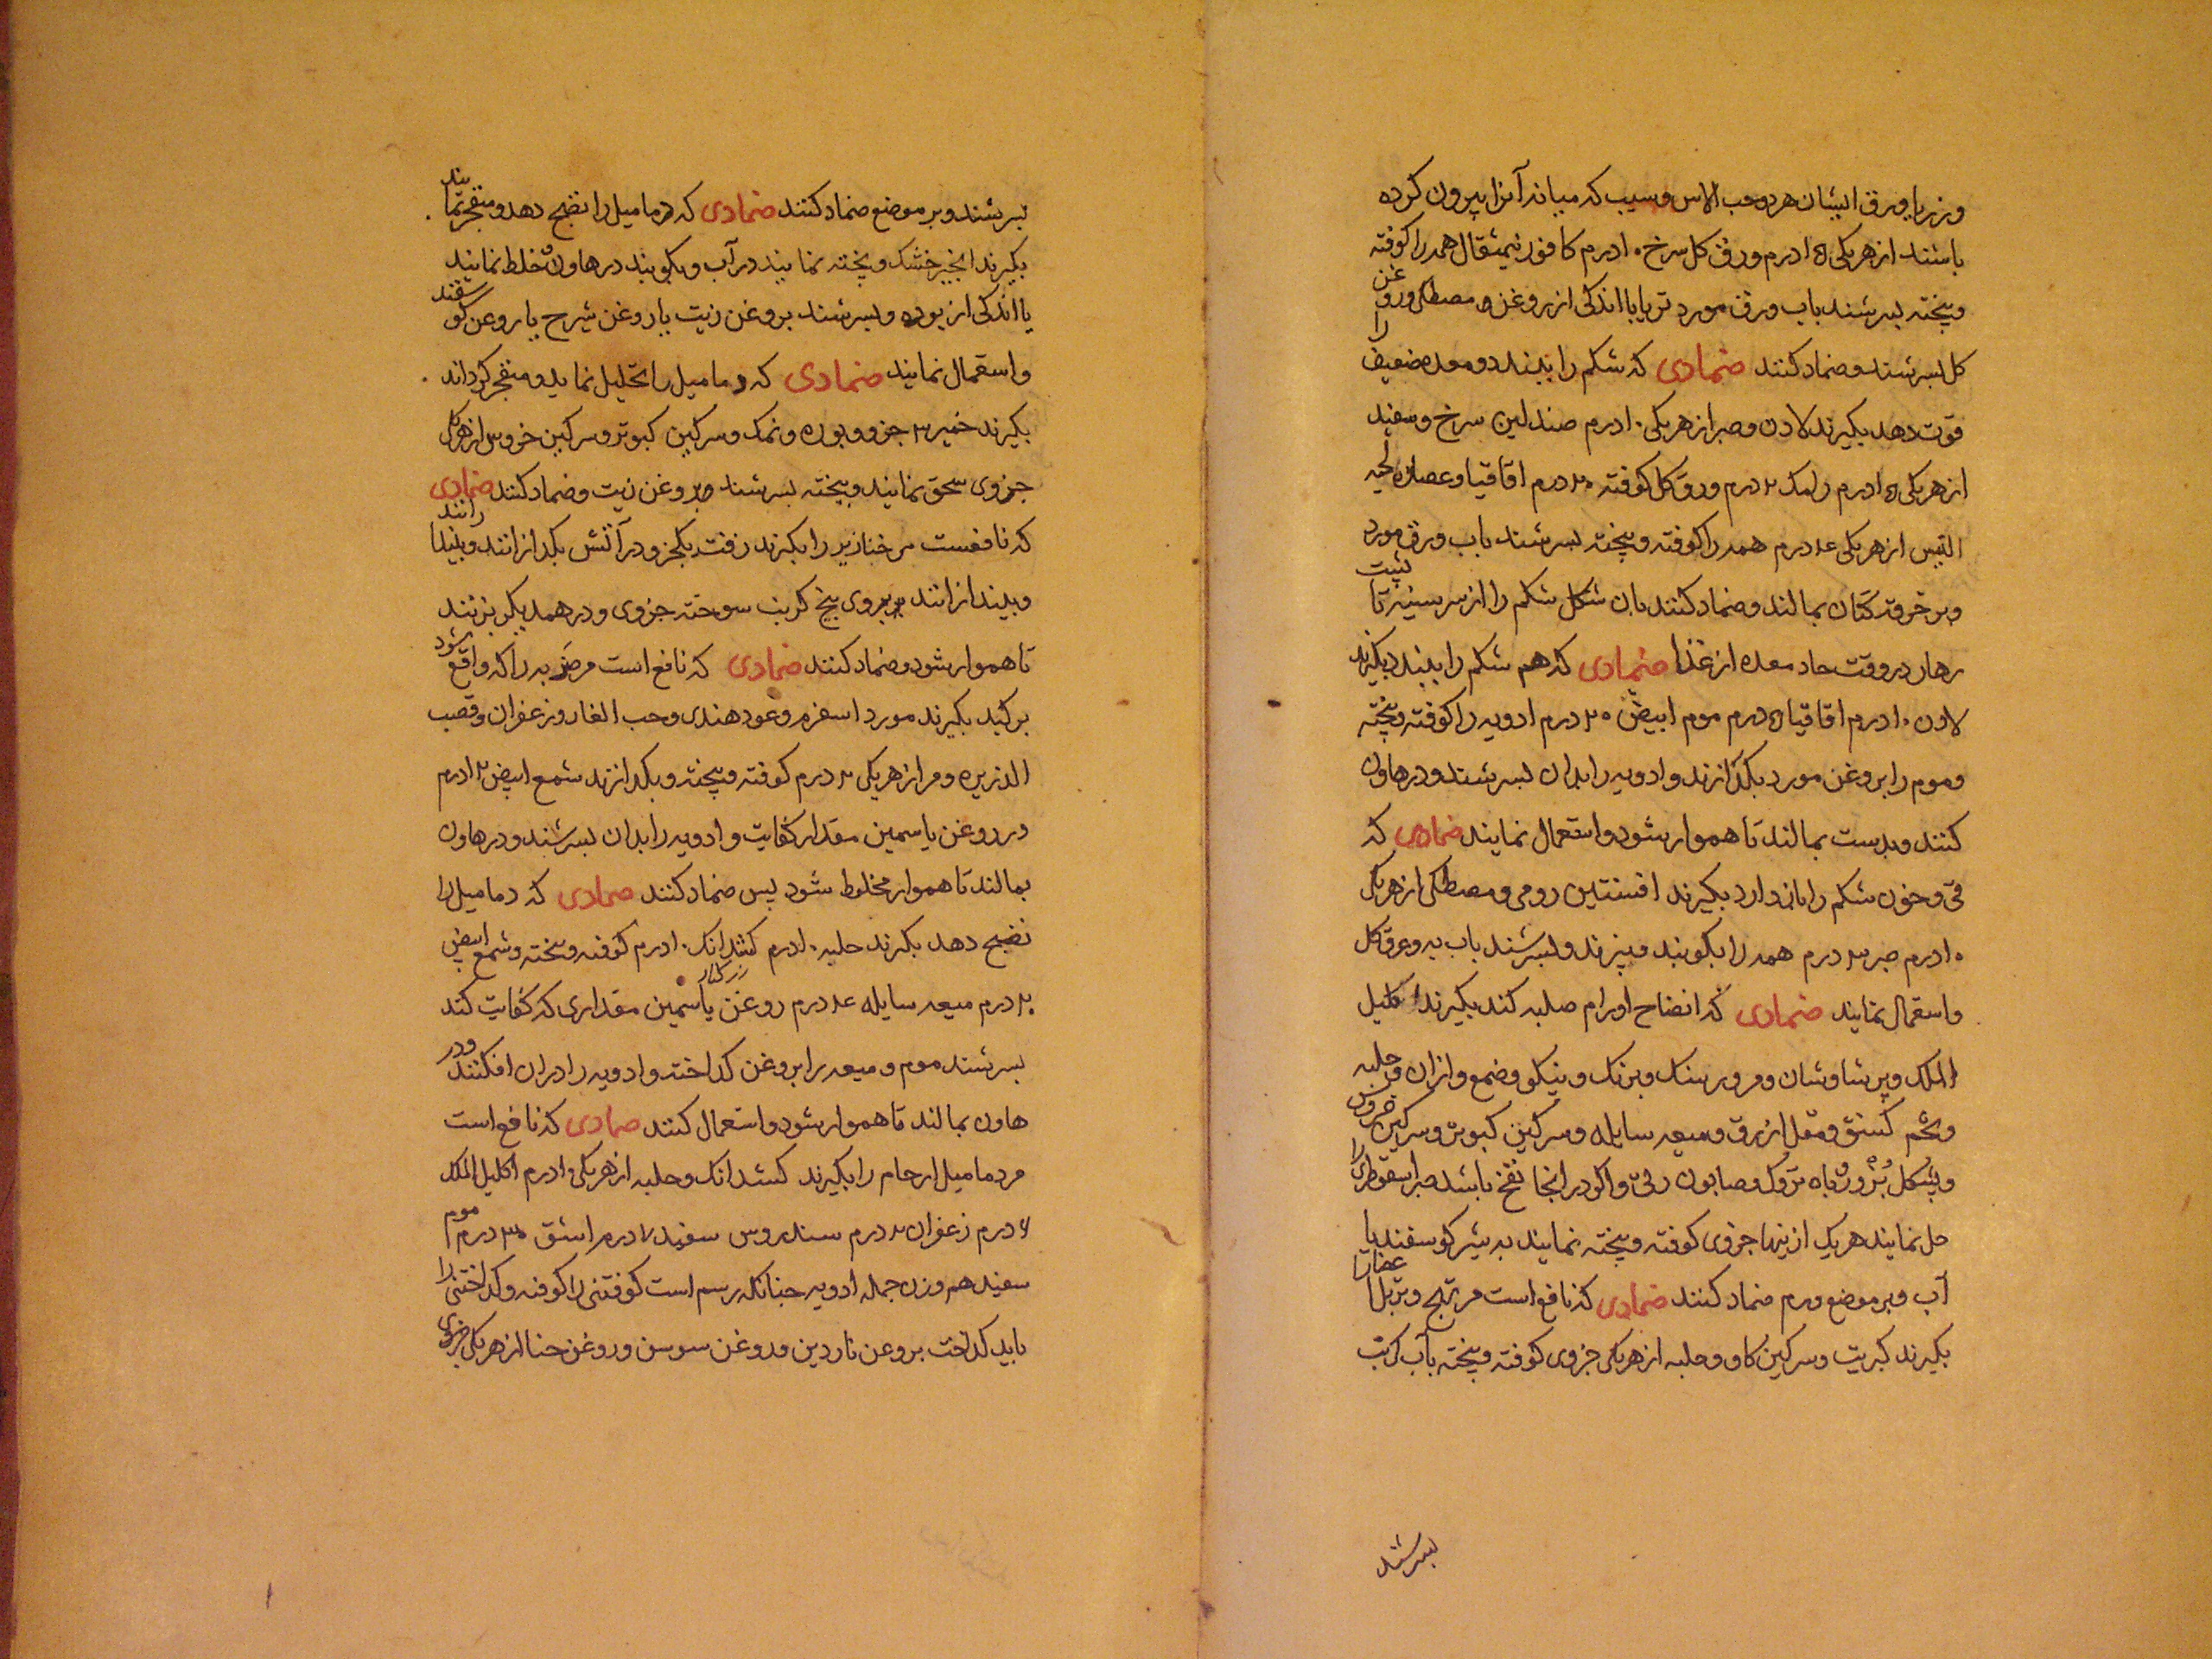 وزریاب ورق ایشان هردو حب الاس وسیب که میانه آنرا بیرون کرده
باشند از هریکی ۱۵ درم ورق کل سرخ ۱۰ درم کافور نیمثقال همه را کوفته
وبیخته بسرشند باب ورق مورد تر یا با اندکی از روغن مصطکی وروغن
کل بسرشند وضماد کنند ضمادی که شکم را ببندد ومعده ضعیف را
قوت دهد بکیرند لادن وصبر از هریکی ۱۰ درم صندلین سرخ وسفید
از هریکی ۱۵ درم رامک ۲ درم ورق کل کوفته ۲۰ درم اقاقیا وعصاره لحیه
التیس از هریکی ۴ درم همه را کوفته وبیخته بسرشند باب ورق مورد
وبر خرقه کتان بمالند وضماد کنند بان شکل شکم را از سر سینه تا پشت
رهار در وقت حاد معده از غذا ضمادی که هم شکم را ببندد بکیرند
لادن ۱۰ درم اقاقیا ۵ درم موم ابیض ۲۰ درم ادویه را کوفته وبیخته
وموم را بروغن مورد بکدازند وادویه را بدان بسرشند ودر هاون
کنند وبدست بمالند تا هموار شود واستعمال نمایند ضمادی که
قی وخون شکم را باز دارد بکیرند افسنتین رومی ومصطکی از هریک
۱۰ درم صبر ۳ درم همه را بکوبند وبیزند وبسرشند باب به وعرق کل
واستعمال نمایند ضمادی که انضاج اورام صلبه کند بکیرند اکلیل
الملک وپرشاوشان ومرور سنک وبزنک ونیکو وضمع وازان وحلبه
وتخم کسنق ومقل ازرق ومیعه سایله وسرکین کبوتر وسرکین خروس
وپشکل بز وروباه ترک وصابون رقی واکر در انجا نفخ باشد صبر اسقوطری را
حل نمایند هریک ازینها جزوی کوفته وبیخته نمایند به شیر کوسفند یا
آب وبر موضع ورم ضماد کنند ضمادی که نافع است مر تهبج وتربل اعضا را
بکیرند کبریت وسرکین کاو وحلبه از هریکی جزوی کوفته وبیخته بآب کرنب
بسرشند
بسرشند وبر موضع ضماد کنند ضمادی که دمامیل را نضج دهد ومنفجر نمایند
بکیرند انجیر خشک وپخته نمایند در آب وبکوبند در هاون وخلط نمایند
با اندکی از بوره وبسرشند بروغن زیت یا روغن شیرج یا روغن کوسفند
واستعمال نمایند ضمادی که دمامیل را تحلیل نماید ومنفجر کرداند
بکیرند خمیر ۳ جزو وبوره ونمک وسرکین کبوتر وسرکین خروس از هریک
جزوی سحق نمایند وبیخته بسرشند بروغن زیت وضماد کنند ضمادی
که نافعست مر خنازیر را بکیرند زفت یکجزو در آتش بکدازانند
وبیندازانند بر روی بیخ کرنب سوخته جزوی ودر همدیکر بزنند
تا هموار شود وضماد کنند ضمادی که نافع است مر ضربه را که واقع شود
برکبد بکیرند مورد اسفرم وعود هندی وحب الغار وزعفران وقصب
الذریره ومر از هریکی ۲ درم کوفته وبیخته وبکدازند شمع ابیض ۱۲ درم
در روغن یاسمین مقدار کفایت وادویه را بدان بسرشند ودر هاون
بمالند تا هموار مخلوط شود پس ضماد کنند ضمادی که دمامیل را
نضج دهد بکیرند حلبه ۱۰ درم کشدانک ۱۰ درم کوفته وبیخته وشمع ابیض
۲۰ درم میعه سایله ۴ درم روغن یاسمین مقداری که کفایت کند
بسرشند موم ومیعه را بروغن کداخته وادویه را دران افکنند ودر
هاون بمالند تا هموار شود واستعمال کنند ضمادی که نافع است
مر دمامیل ارحام را بکیرند کشدانک وحلبه از هریکی ۱۰ درم اکلیل الملک
۶ درم زعفران ۲ درم سندروس سفید ۷ درم اشق ۳۰ درم موم
سفید هم وزن جمله ادویه چنانکه رسم است کوفتنی را کوفته وکداختنی را
باید کداخت بروغن ناردین وروغن سوسن وروغن حنا از هریکی جزوی